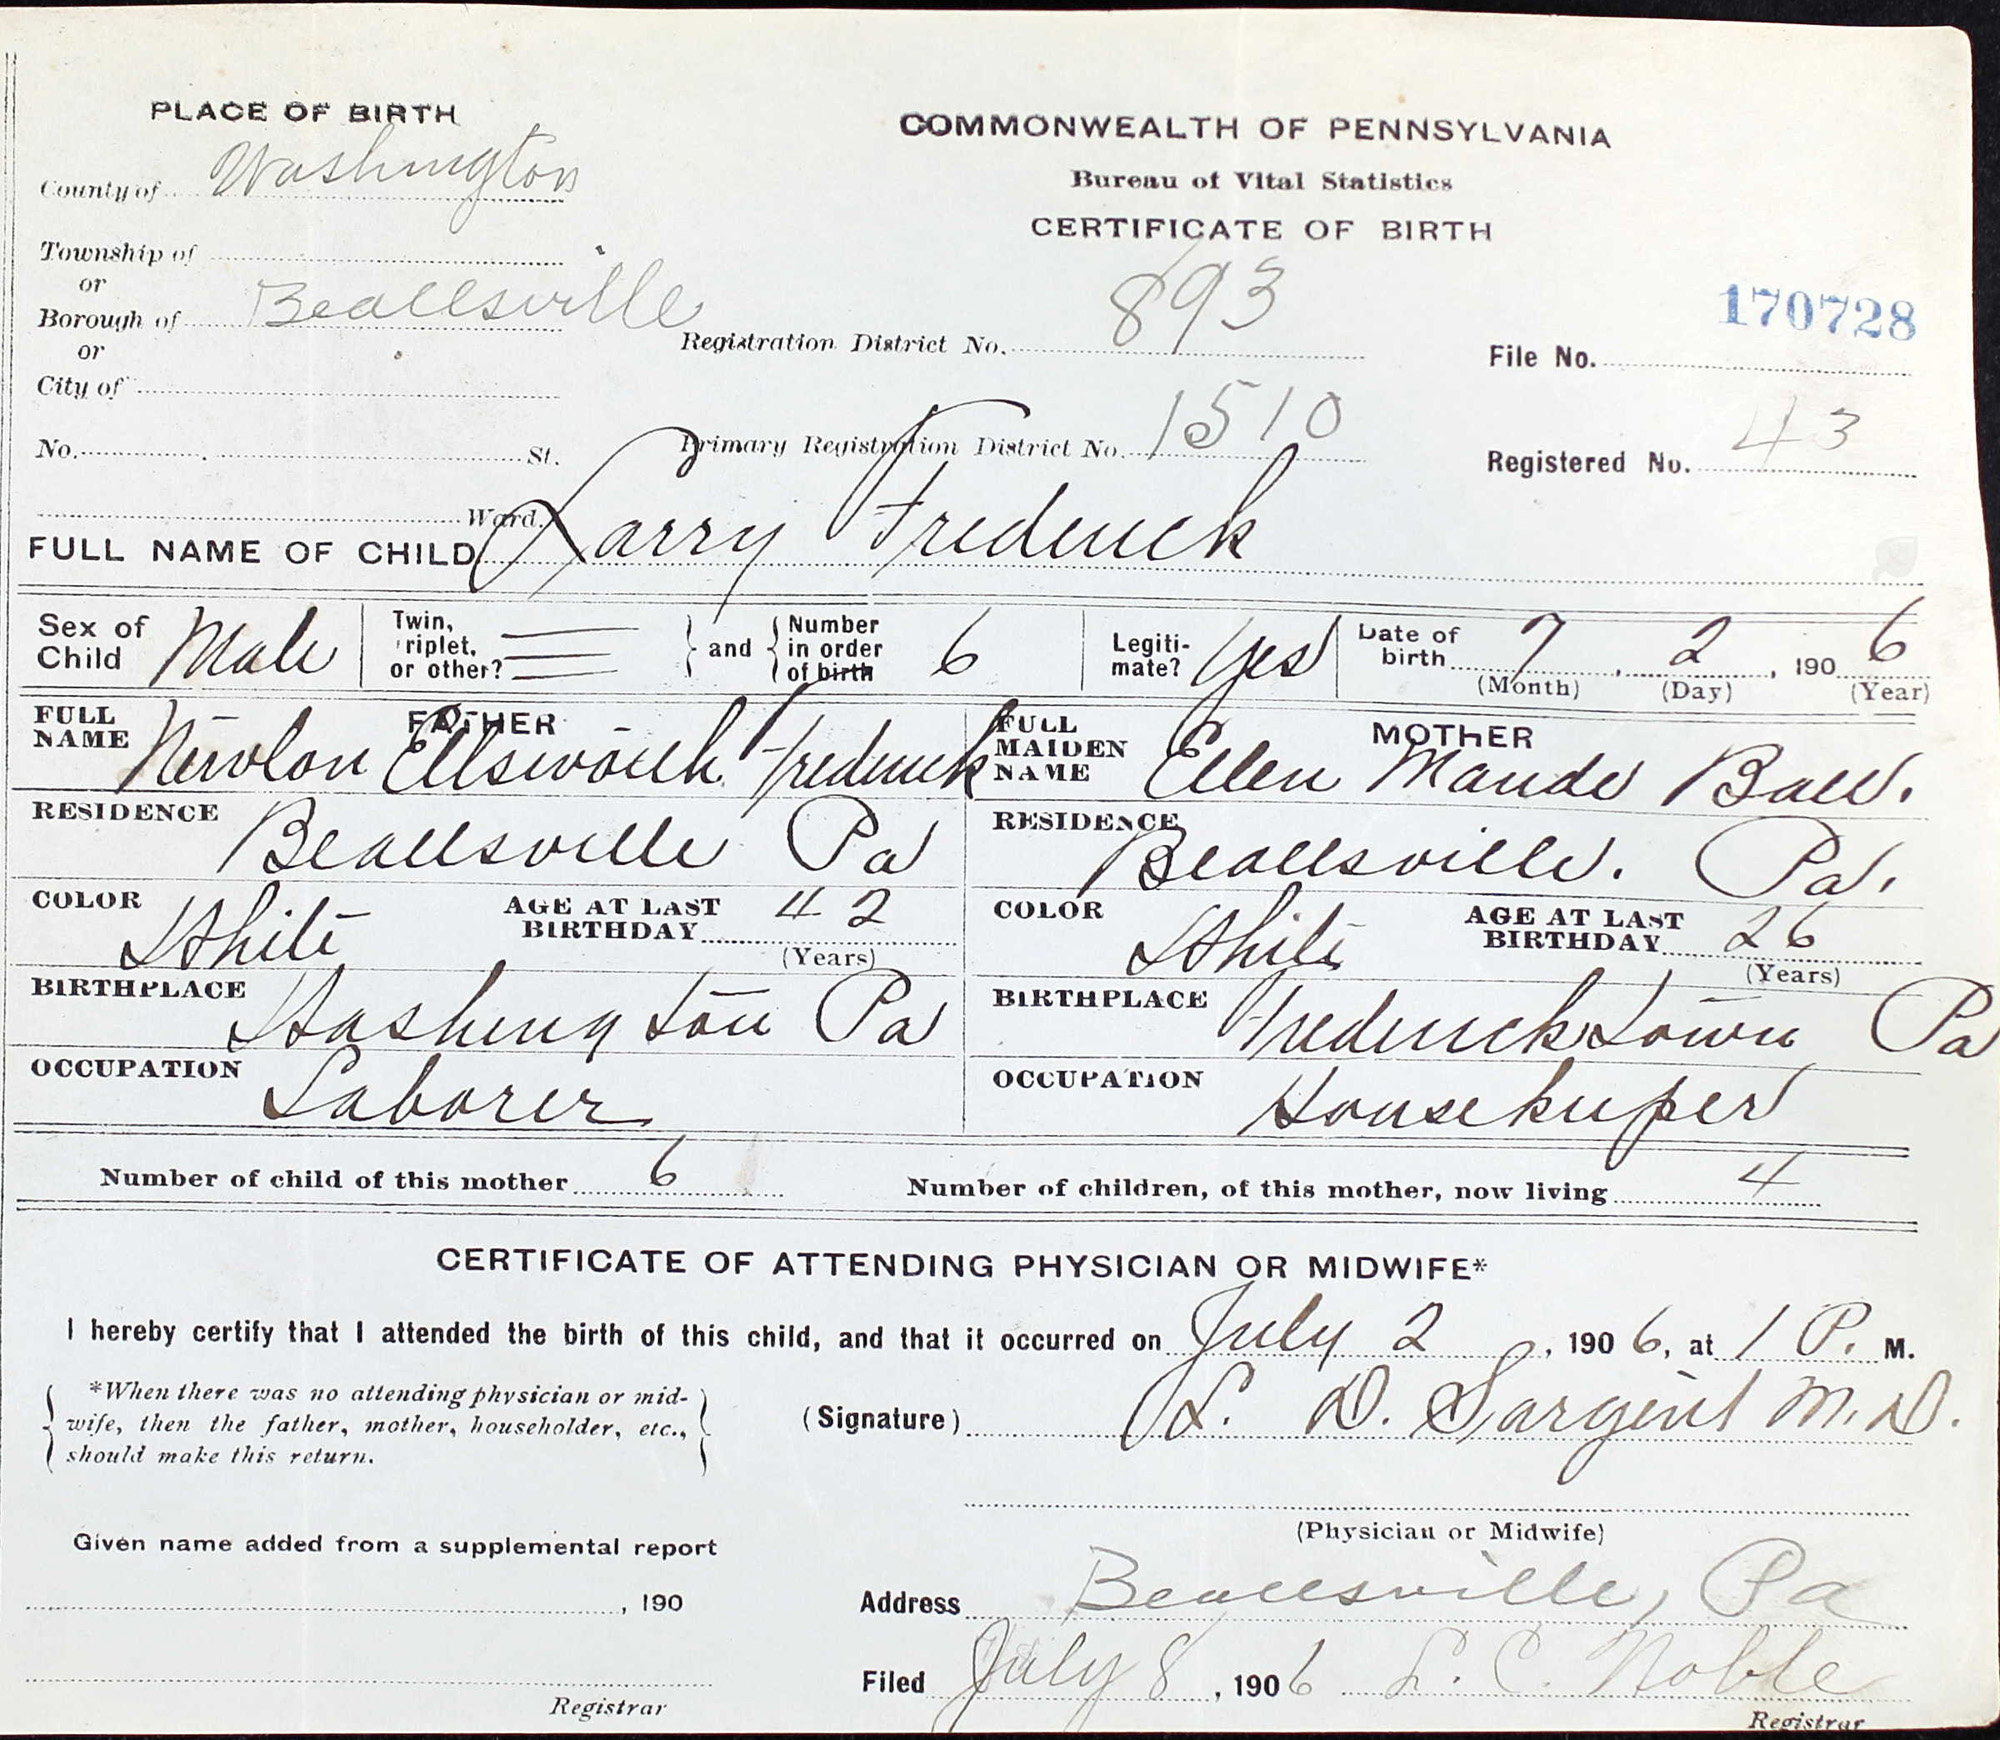 PLACE OF BIRTH
COMMONWEALTH OF PENNSYLVANIA
Bureau of Vital Statistics
CERTIFICATE OF BIRTH
County of Washington
Township of
or
Borough of Beallsville
or
City of
No. St.
Ward.
Registration District No. 893
Primary Registration District No. 1510
170728
File No.
Registered No. 43
FULL NAME OF CHILD Harry Frederick
Sex of Child Male
Twin, Triplet, or other?
and
Number in order of birth 6
Legitimate? Yes
Date of birth 7, 2, 1906
(Month) (Day) (Year)
FATHER
FULL NAME Newlon Ellsworth Frederick
RESIDENCE Beallsville Pa
COLOR White AGE AT LAST BIRTHDAY 42
(Years)
BIRTHPLACE Washington Pa
OCCUPATION Laborer
MOTHER
FULL MAIDEN NAME Ellen Maude Ball.
RESIDENCE Beallsville. Pa.
COLOR White AGE AT LAST BIRTHDAY 26
(Years)
BIRTHPLACE Fredericktown Pa
OCCUPATION Housekeeper
Number of child of this mother 6 Number of children, of this mother, now living 4
CERTIFICATE OF ATTENDING PHYSICIAN OR MIDWIFE*
I hereby certify that I attended the birth of this child, and that it occurred on July 2, 1906, at 1 P. M.
*When there was no attending physician or mid-
wife, then the father, mother, householder, etc.,
should make this return.
(Signature) L. D. Sargent M.D.
(Physician or Midwife)
Given name added from a supplemental report
, 190
Registrar
Address Beallsville, Pa
Filed July 8, 1906 L. C. Noble
Registrar